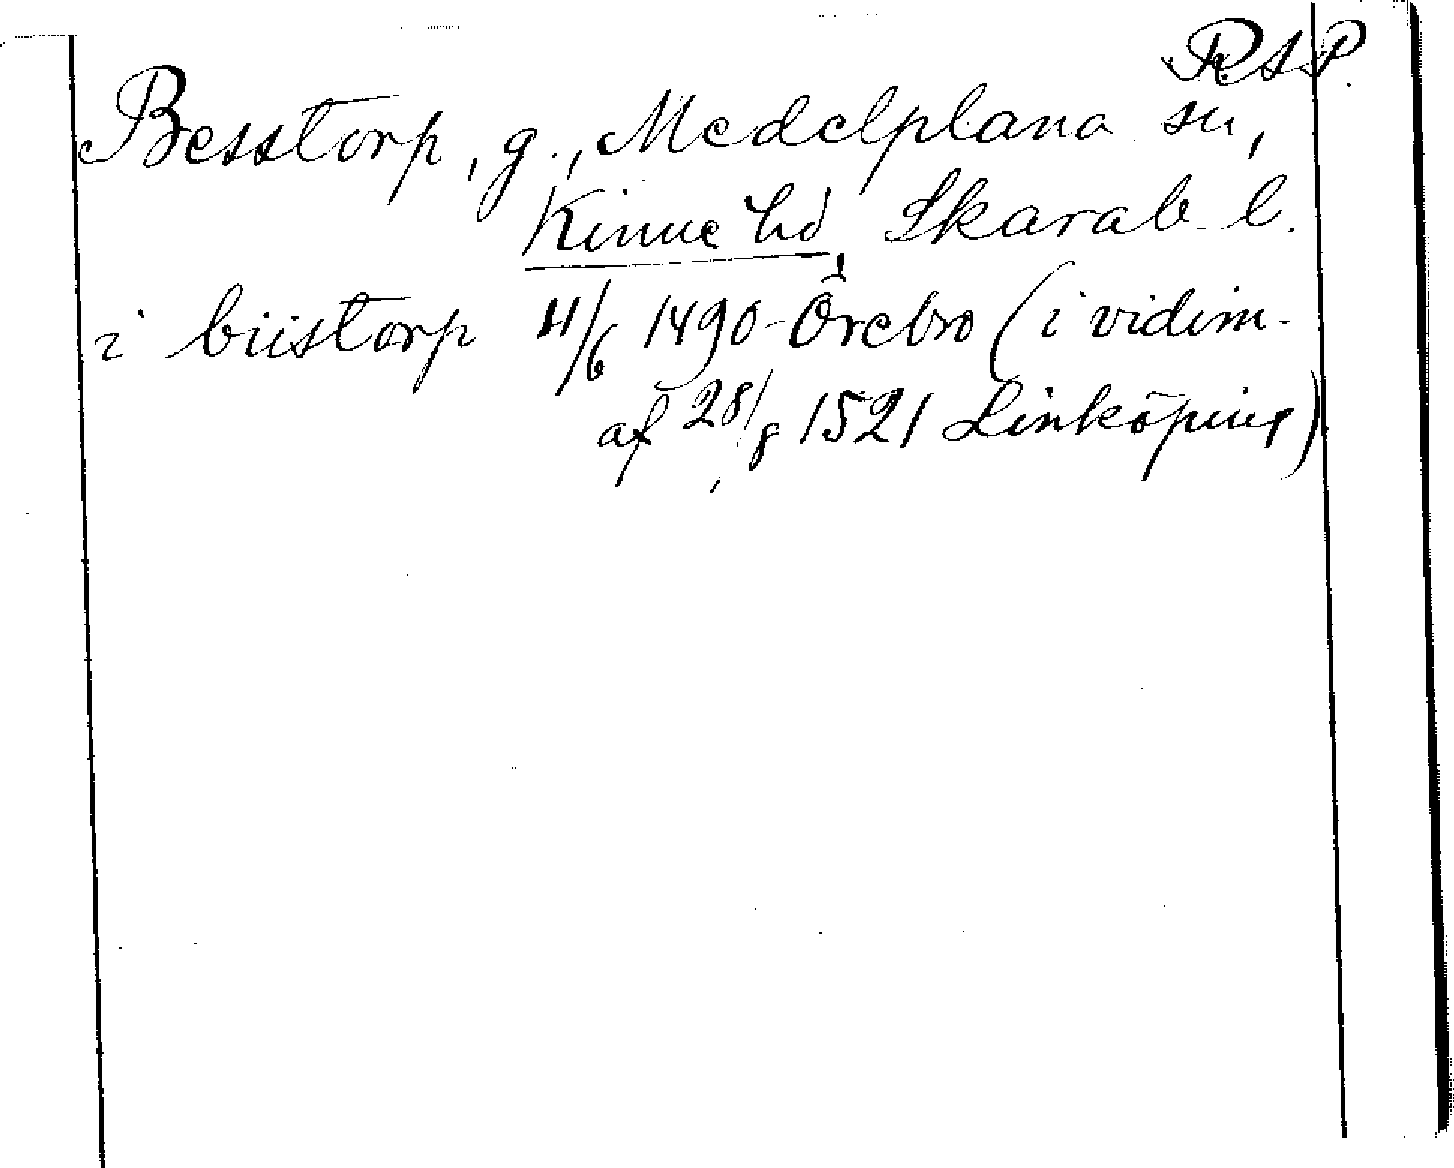 RAP.
Besstorp, g., Medelplana sn,
Kinne hd, Skarab. l.
i biistorp 11/6 1490 Örebro (i vidim.
af 28/8 1521 Linköping)